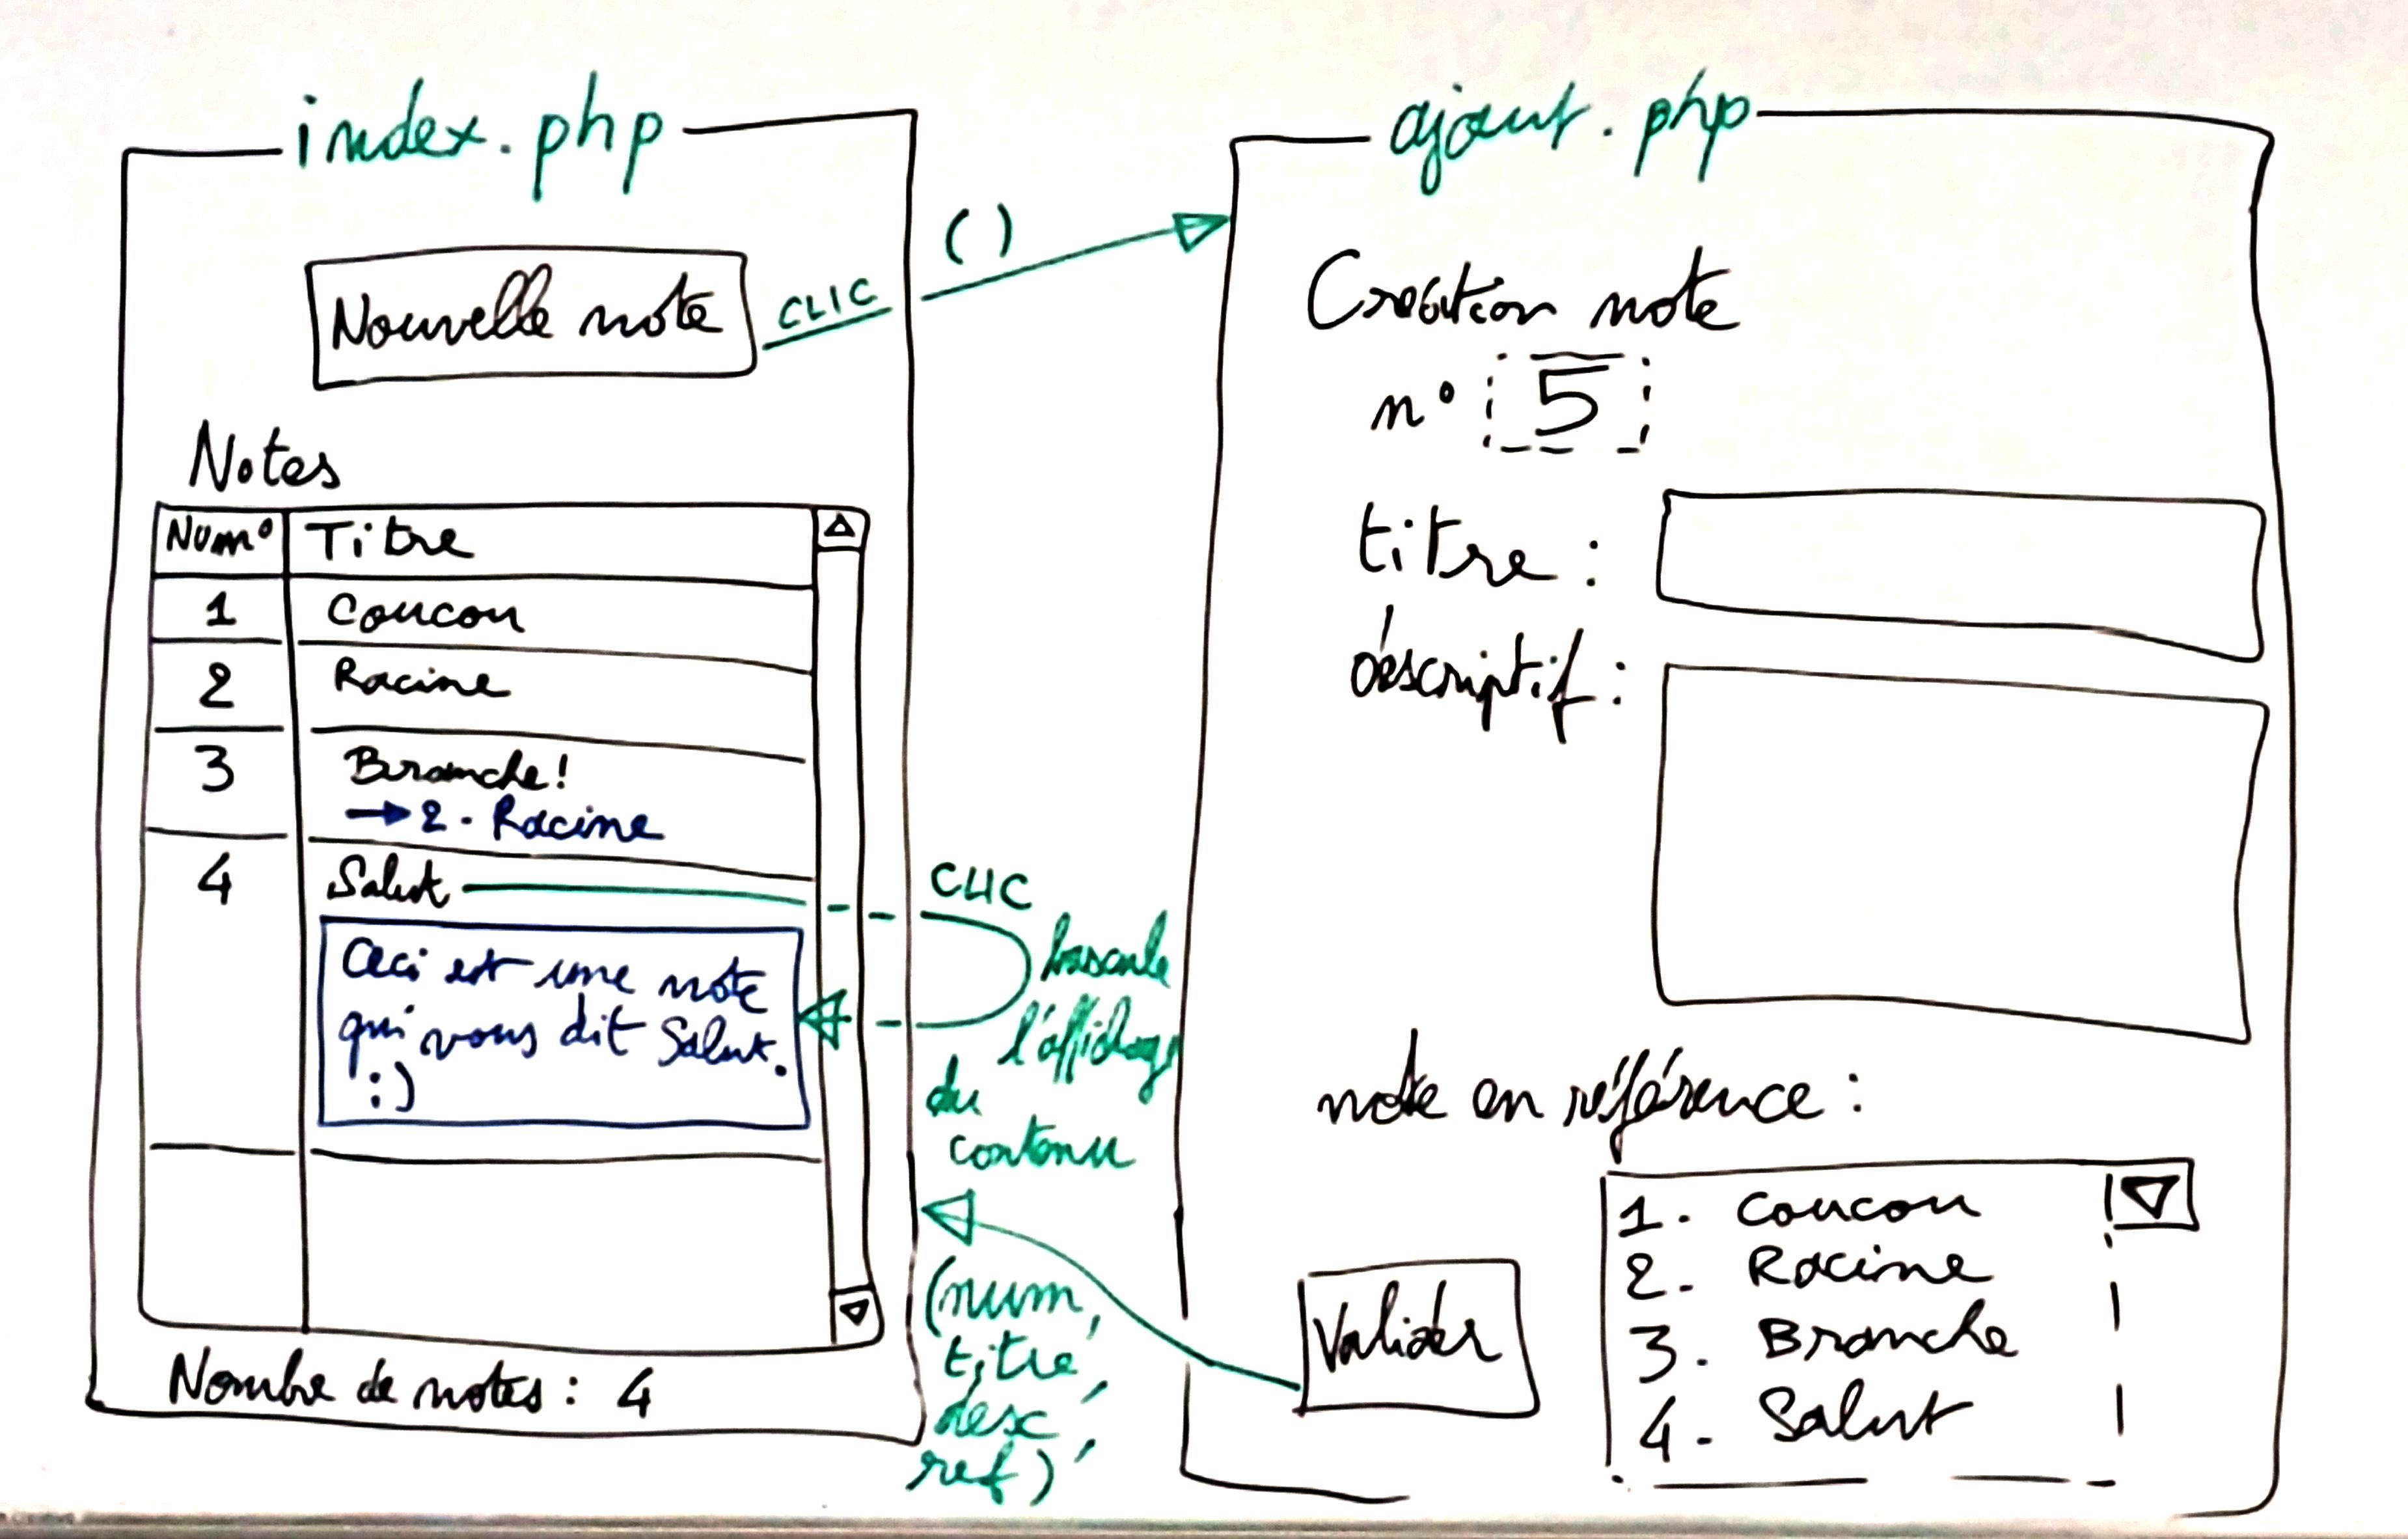 index.php
Nouvelle note
CLIC
( )
Notes
Num° Titre
1 Coucou
2 Racine
3 Branche!
→ 2 - Racine
4 Salut
Ceci est une note
qui vous dit Salut.
:)
Nombre de notes : 4
CLIC
bascule
l'affichage
du
contenu
(num,
titre,
desc,
ref)
ajout.php
Création note
n° 5
titre :
descriptif :
note en référence :
1 - Coucou
2 - Racine
3 - Branche
4 - Salut
Valider